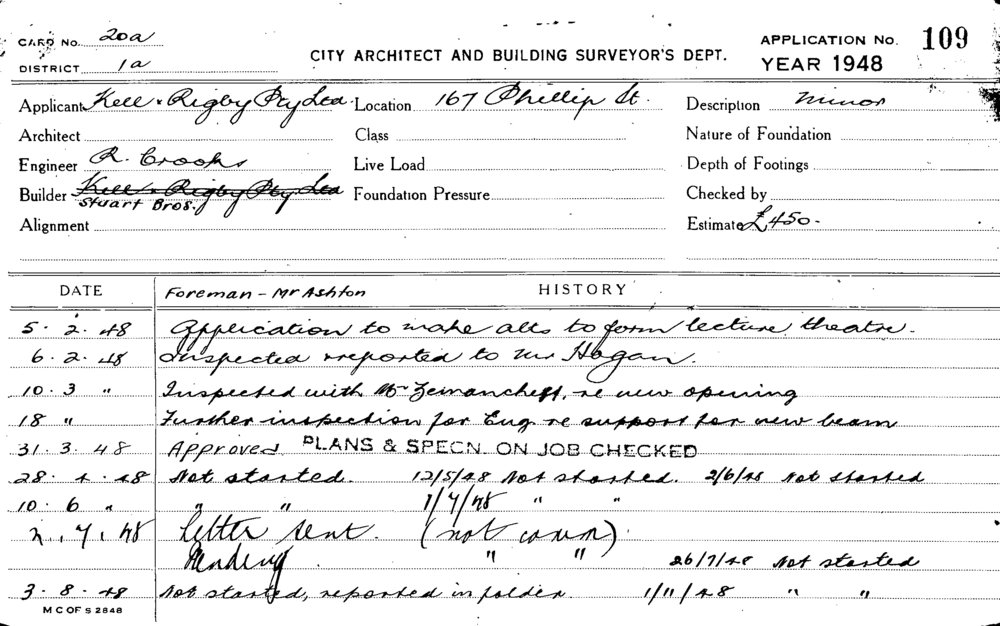 CARD No. 20a
CITY ARCHITECT AND BUILDING SURVEYOR'S DEPT.
APPLICATION No. 109
DISTRICT 1a
YEAR 1948
Applicant Kell & Rigby Pty Ltd. Location 167 Phillip St. Description Minor
Architect Class Nature of Foundation
Engineer R. Crooks Live Load Depth of Footings
Builder Kell & Rigby Pty Ltd Foundation Pressure Checked by
Stuart Bros.
Alignment Estimate £450.-
DATE Foreman - Mr Ashton HISTORY
5. 2. 48 Application to make alts to form lecture theatre.
6. 2. 48 Inspected & reported to Mr Hogan.
10. 3 " Inspected with Mr re new opening
18 " Further inspection for Eng re support for new beam
31. 3. 48 Approved PLANS & SPECN. ON JOB CHECKED
28. 4. 48 Not started. 12/5/48 Not started. 2/6/48 Not started
10. 6 " " " 1/7/48 " "
2. 7. 48 Letter sent. (not comm)
Pending " " 26/7/48 Not started
3. 8. 48 Not started, reported in folder. 1/11/48 " "
M C OF S 2848